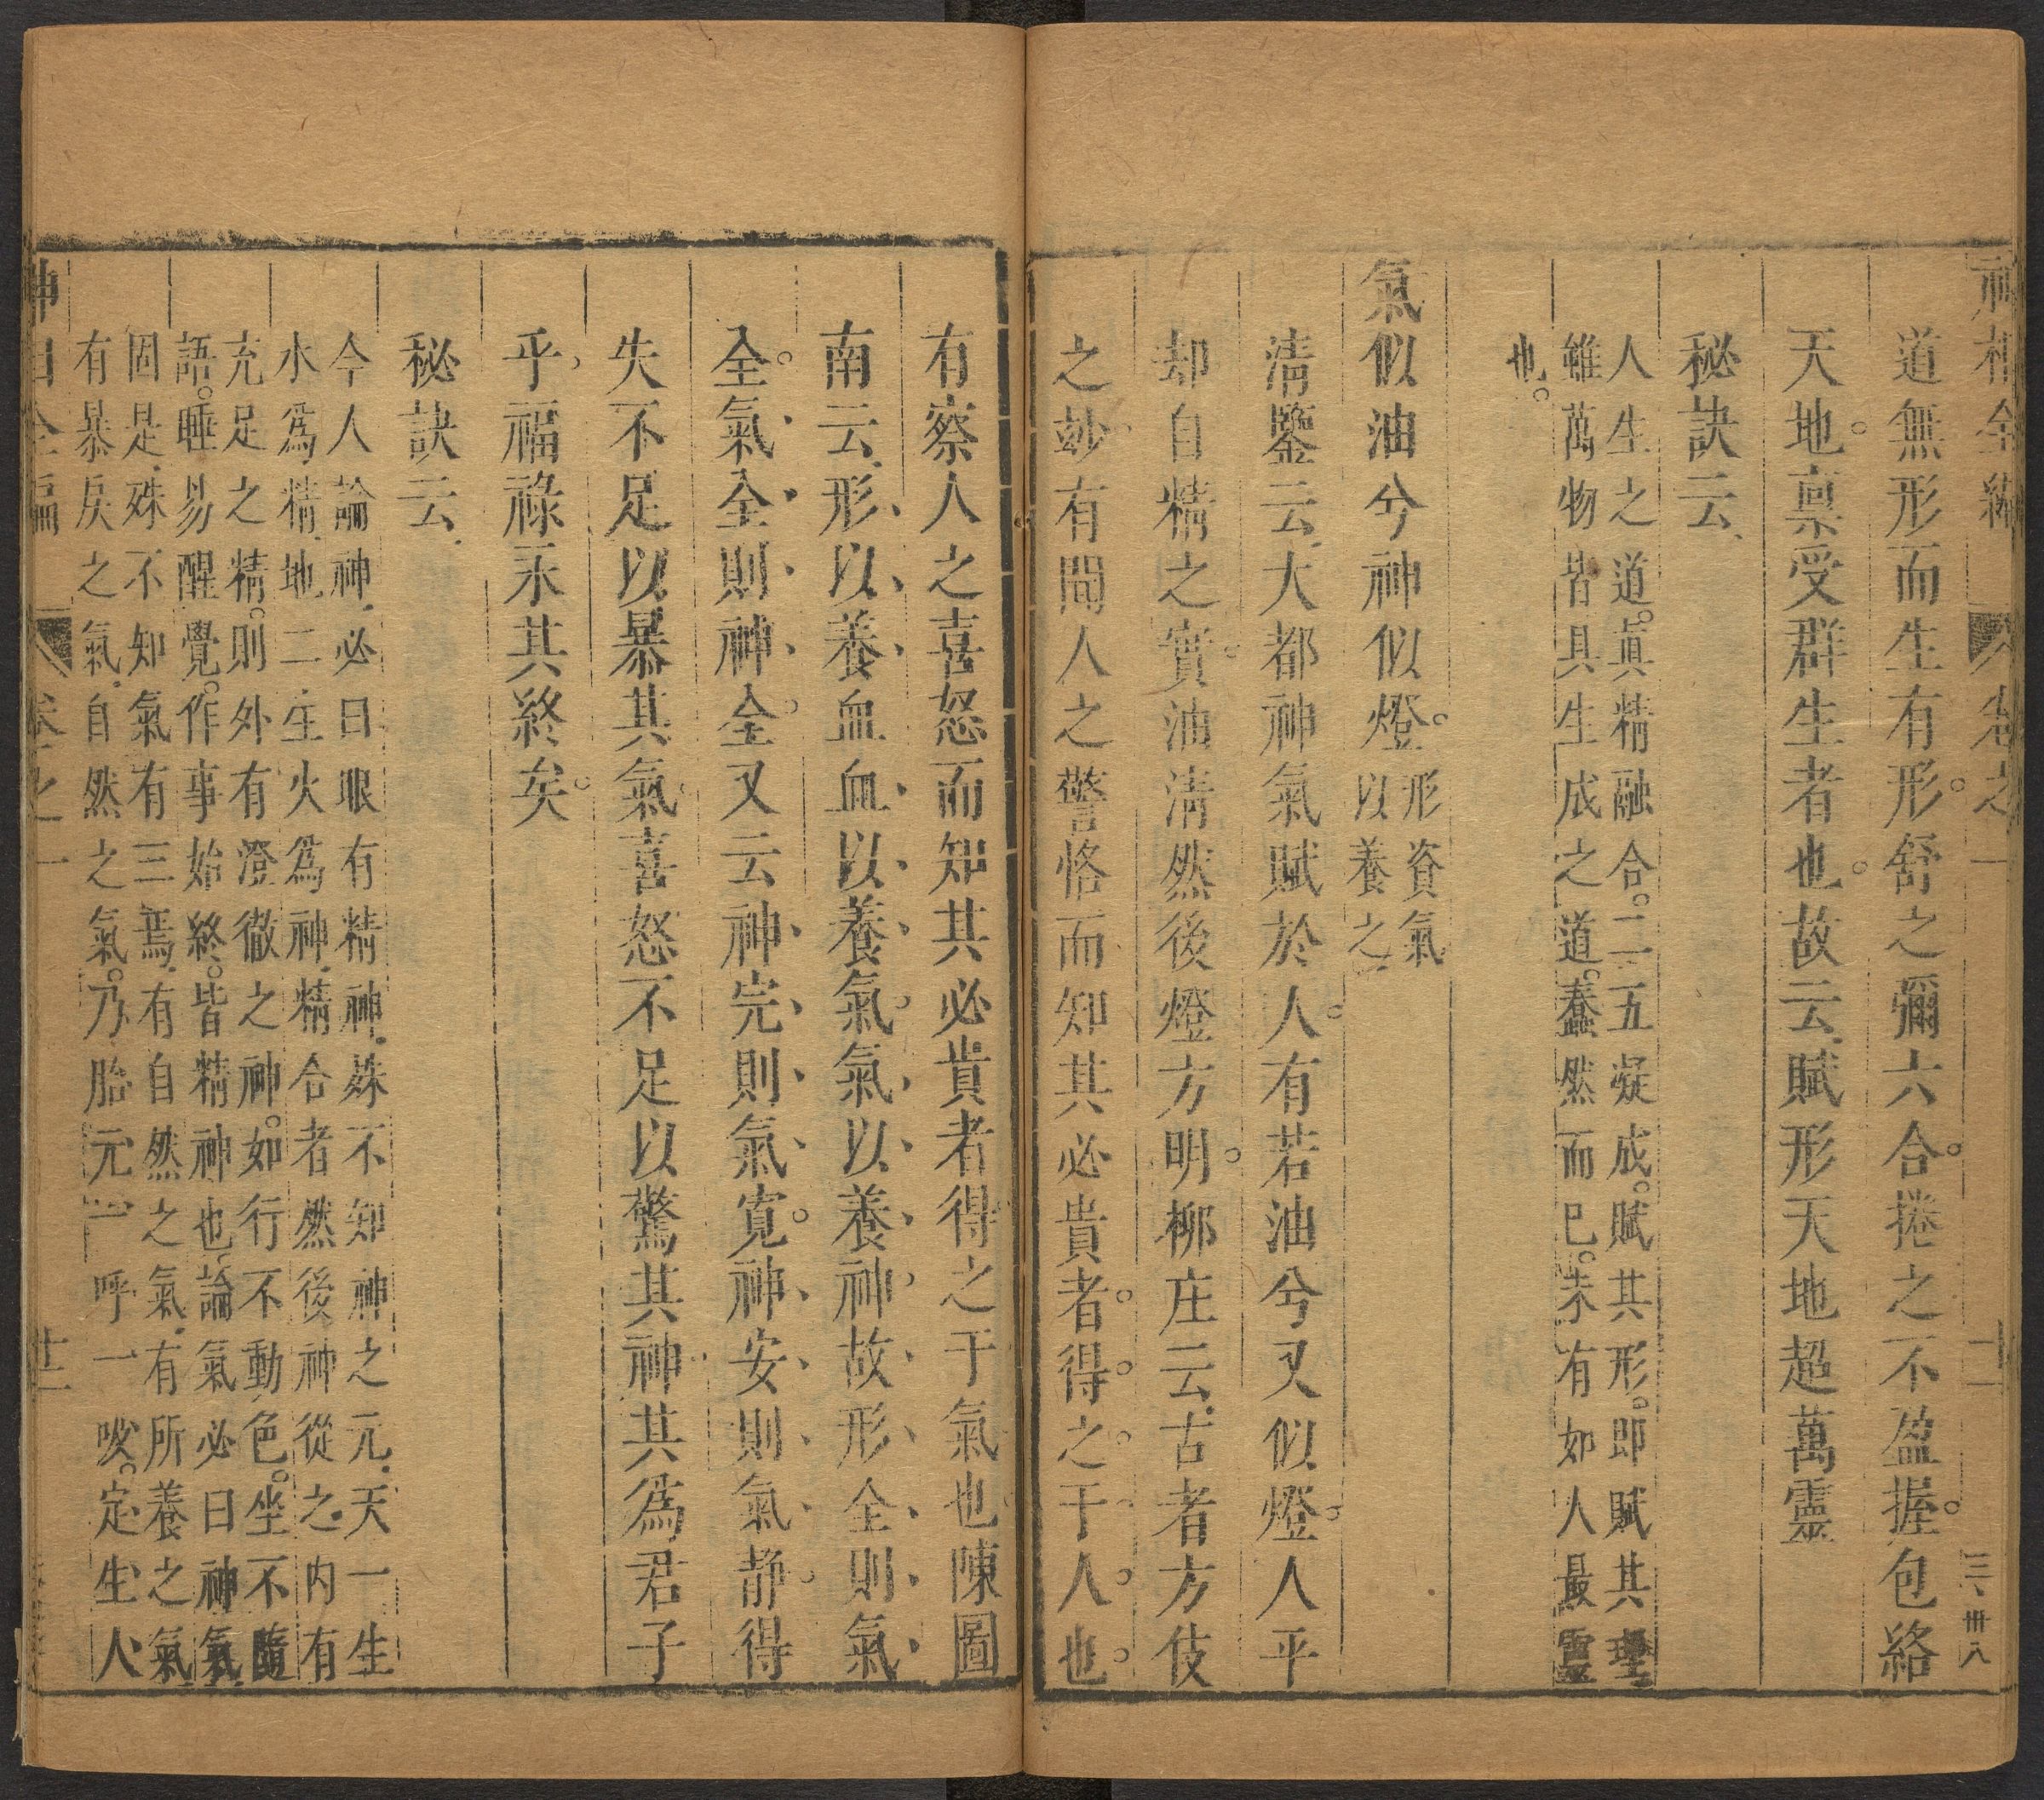 神相全編 卷之一 十一 三 卅八
道無形而生有形舒之彌六合捲之不盈握包絡
天地禀受群生者也故云賦形天地超萬靈
秘訣云
人生之道真精融合二五凝成賦其形即賦其理
雖萬物皆具生成之道蠢然而巳未有如人最靈
也
氣似油兮神似燈
形資氣
以養之
清鑒云大都神氣賦於人有若油兮又似燈人平
却自精之實油清然後燈方明柳庄云古者方伎
之妙有聞人之警咯而知其必貴者得之于人也
有察人之喜怒而知其必貴者得之于氣也陳圖
南云形以養血血以養氣氣以養神故形全則氣
全氣全則神全又云神完則氣寛神安則氣静得
失不足以暴其氣喜怒不足以驚其神其爲君子
乎福祿永其終矣
秘訣云
今人論神必曰眼有精神殊不知神之元天一生
水爲精地二生火爲神精合者然後神從之内有
充足之精則外有澄徹之神如行不動色坐不隨
語睡易醒覺作事始終皆精神也論氣必曰神氣
固是殊不知氣有三焉有自然之氣有所養之氣
有暴戾之氣自然之氣乃胎元一呼一吸定生人
神相全編 卷之一 十二